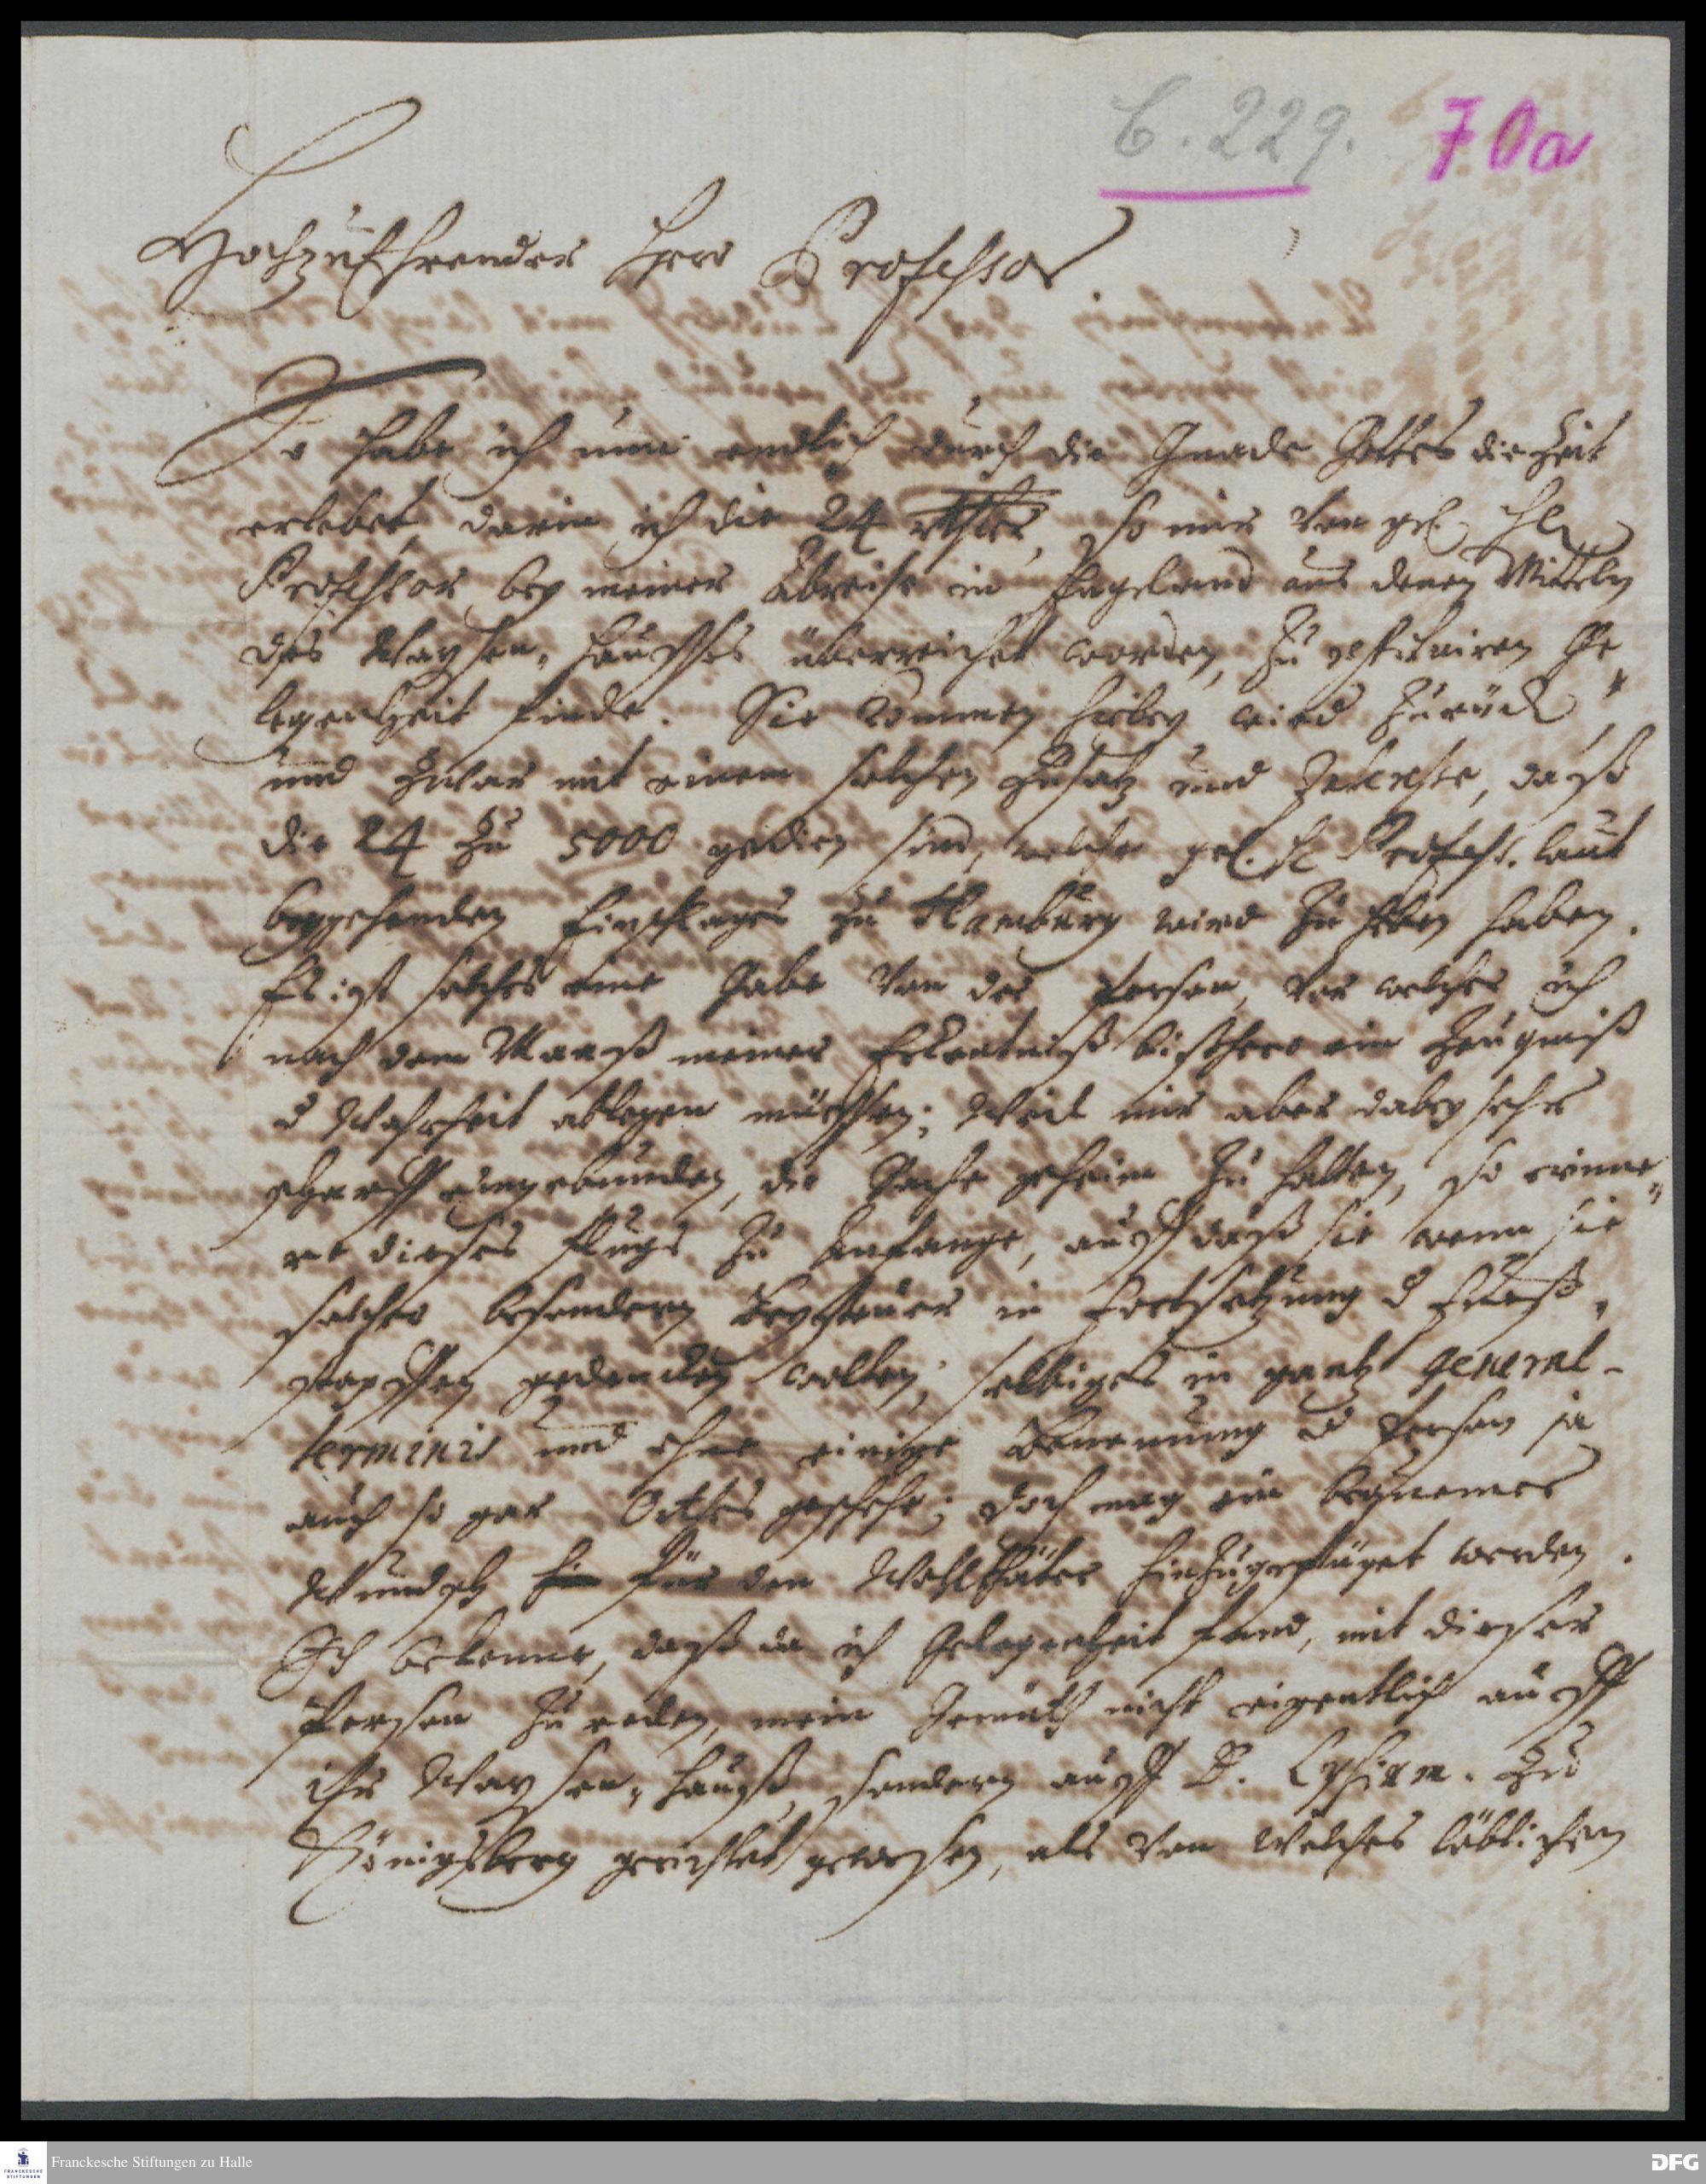 C. 229. 70a
HochzuEhrender Herr Professor
So habe ich nun endlich durch die Gnade Gottes die Zeit
erlebet, darin ich die 24 rthler, so mir von gel. H.
Professor bey meiner Abreise in Engeland aus denen Mitteln
des Waysen-Hausses überreichet worden, zu restituiren Ge-
legenheit finde. Sie kommen hierbey wied zurück
und zwar mit einem solchen Zusatz und Interesse, daß
die 24 zu 5000 gedien sind, welche gel. H. Profess. laut
beygehenden Einschlages zu Hamburg wird zu heben haben.
Es ist solches eine Gabe von der Person, von welcher ich
nach dem Maaß meiner Erkentniß bißhero ein Zeugniß
d Wahrheit ablegen müssen; Weil mir aber dabey sehr
scharff eingebunden, die Sache geheim zu halten, so erinne-
re dieses flugs zu Anfange, auff daß sie wenn sie
solcher besondern Beysteuer in Fortsetzung d Fueß-
stapffen gedencken wolten, selbiges in gantz general-
terminis und ohne einige Benennung d Person ja
auch so gar Orthes geschehe; doch mag ein beqvemer
Wundsch für den Wohlthäter hinzugefüget werden.
Ich bekenne, daß da ich Gelegenheit fand, mit dieser
Person zu reden, mein Gemüth nicht eigentlich auff
ihr Waysen-Hauß, sondern auff D. Lysium. zu
Königsberg gerichtet gewesen, als von welches löblichen
Franckesche Stiftungen zu Halle
FRANCKESCHE
STIFTUNGEN
DFG